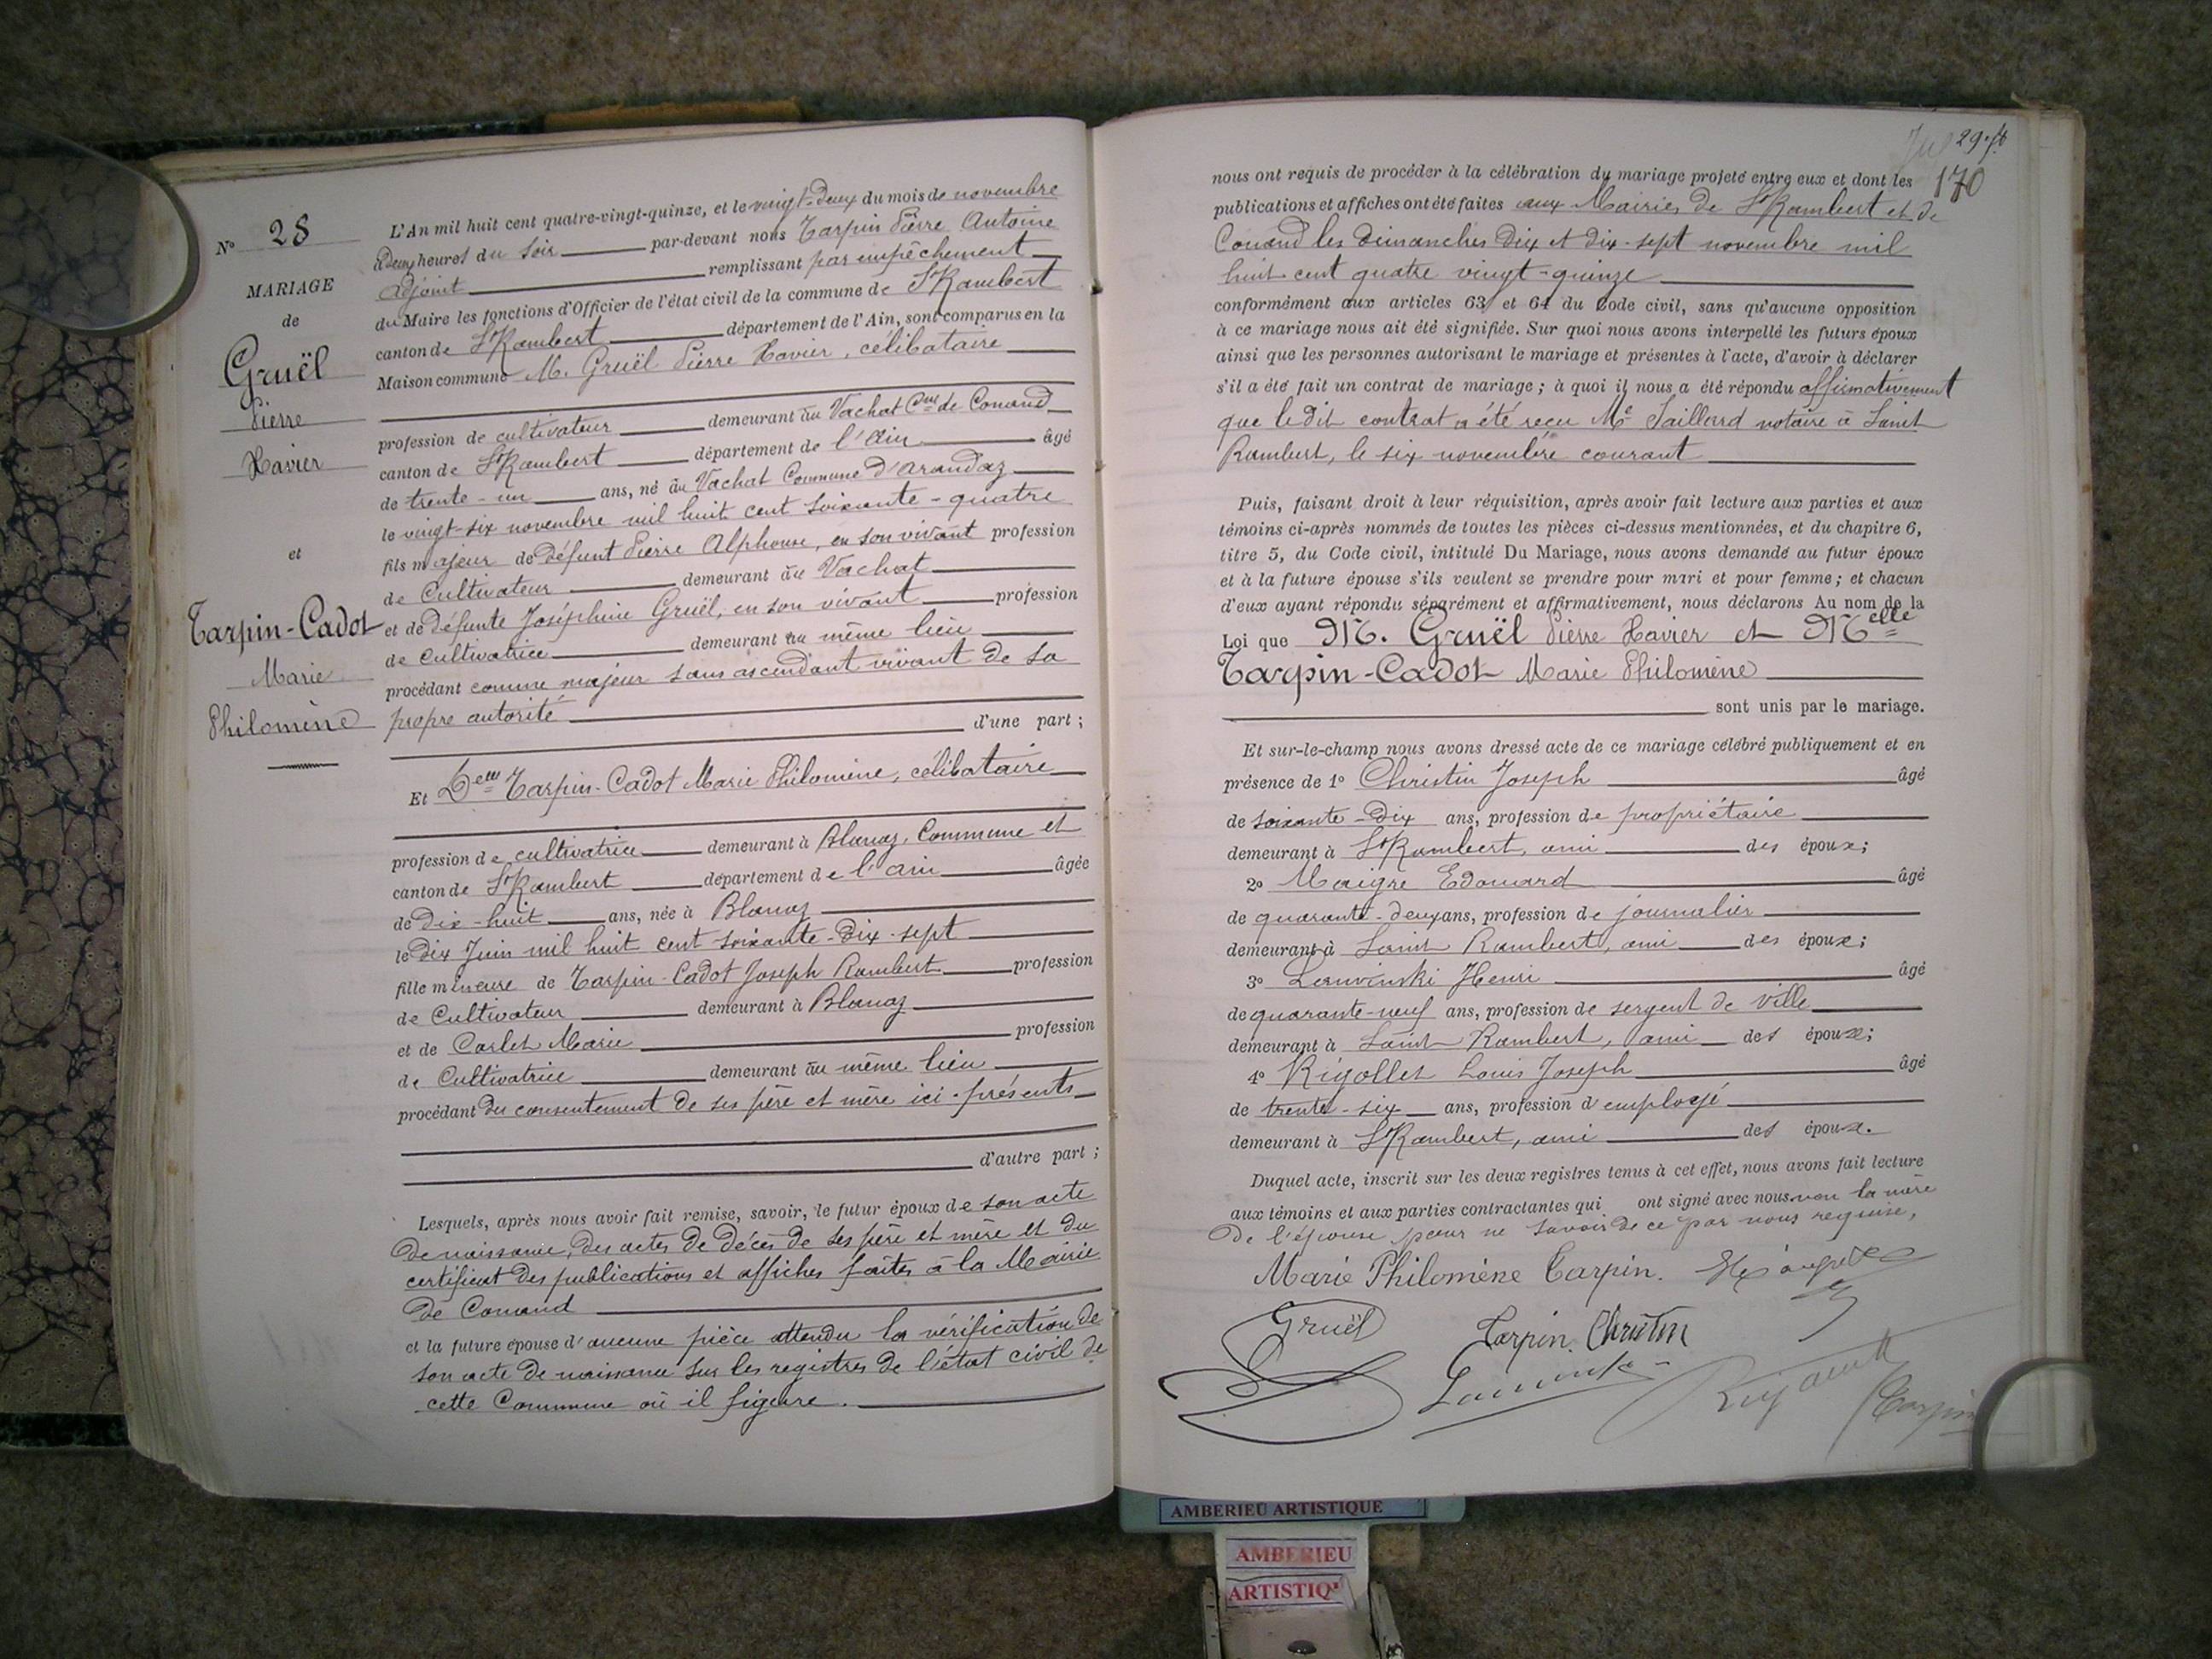 N° 28
MARIAGE
de
Gruël
Pierre
Xavier
et
Tarpin-Cadot
Marie
Philomène
L'An mil huit cent quatre-vingt-quinze, et le vingt-deux du mois de novembre
à deux heures du soir par-devant nous Tarpin Pierre Antoine
adjoint remplissant par empêchement
du Maire les fonctions d'Officier de l'état civil de la commune de St Rambert
canton de St Rambert département de l'Ain, sont comparus en la
Maison commune M. Gruël Pierre Xavier, célibataire
profession de cultivateur demeurant au Vachat Cne de Conand
canton de St Rambert département de l'Ain âgé
de trente-un ans, né au Vachat Commune d'Arandaz
le vingt-six novembre mil huit cent soixante-quatre
fils majeur de défunt Pierre Alphonse, en son vivant profession
de Cultivateur demeurant au Vachat
et de défunte Joséphine Gruël, en son vivant profession
de cultivatrice demeurant au même lieu
procédant comme majeur sans ascendant vivant de sa
propre autorité
d'une part ;
Et Delle Tarpin-Cadot Marie Philomène, célibataire
profession de cultivatrice demeurant à Blanaz, Commune et
canton de St Rambert département de l'ain âgée
de dix-huit ans, née à Blanaz
le dix Juin mil huit cent soixante-dix-sept
fille mineure de Tarpin-Cadot Joseph Rambert profession
de Cultivateur demeurant à Blanaz
et de Carlet Marie profession
de Cultivatrice demeurant au même lieu
procédant du consentement de ses père et mère ici-présents
d'autre part ;
Lesquels, après nous avoir fait remise, savoir, le futur époux de son acte
de naissance, des actes de décès de ses père et mère et du
certificat des publications et affiches faites à la Mairie
de Conand
et la future épouse d'aucune pièce attendu la vérification de
son acte de naissance sur les registres de l'état civil de
cette Commune où il figure.
29
170
nous ont requis de procéder à la célébration du mariage projeté entre eux et dont les
publications et affiches ont été faites aux Mairies de St Rambert et de
Conand les dimanches dix et dix-sept novembre mil
huit cent quatre vingt-quinze
conformément aux articles 63 et 64 du Code civil, sans qu'aucune opposition
à ce mariage nous ait été signifiée. Sur quoi nous avons interpellé les futurs époux
ainsi que les personnes autorisant le mariage et présentes à l'acte, d'avoir à déclarer
s'il a été fait un contrat de mariage ; à quoi il nous a été répondu affirmativement
que le dit contrat a été reçu Me Saillard notaire à Saint
Rambert, le six novembre courant
Puis, faisant droit à leur réquisition, après avoir fait lecture aux parties et aux
témoins ci-après nommés de toutes les pièces ci-dessus mentionnées, et du chapitre 6,
titre 5, du Code civil, intitulé Du Mariage, nous avons demandé au futur époux
et à la future épouse s'ils veulent se prendre pour mari et pour femme ; et chacun
d'eux ayant répondu séparément et affirmativement, nous déclarons Au nom de la
Loi que M. Gruël Pierre Xavier et Melle
Tarpin-Cadot Marie Philomène
sont unis par le mariage.
Et sur-le-champ nous avons dressé acte de ce mariage célébré publiquement et en
présence de 1° Christin Joseph âgé
de soixante-dix ans, profession de propriétaire
demeurant à St Rambert, ami des époux ;
2° Maigre Edouard âgé
de quarante-deux ans, profession de journalier
demeurant à Saint Rambert, ami des époux ;
3° Henri âgé
de quarante-neuf ans, profession de sergent de ville
demeurant à Saint Rambert, ami des époux ;
4° Rigollet Louis Joseph âgé
de trente-six ans, profession d'employé
demeurant à St Rambert, ami des époux.
Duquel acte, inscrit sur les deux registres tenus à cet effet, nous avons fait lecture
aux témoins et aux parties contractantes qui ont signé avec nous non la mère
de l'épouse pour ne savoir de ce par nous requise,
Marie Philomène Tarpin.
Gruël Tarpin Christin
Tarpin
AMBERIEU ARTISTIQUE
AMBERIEU
ARTISTIQ